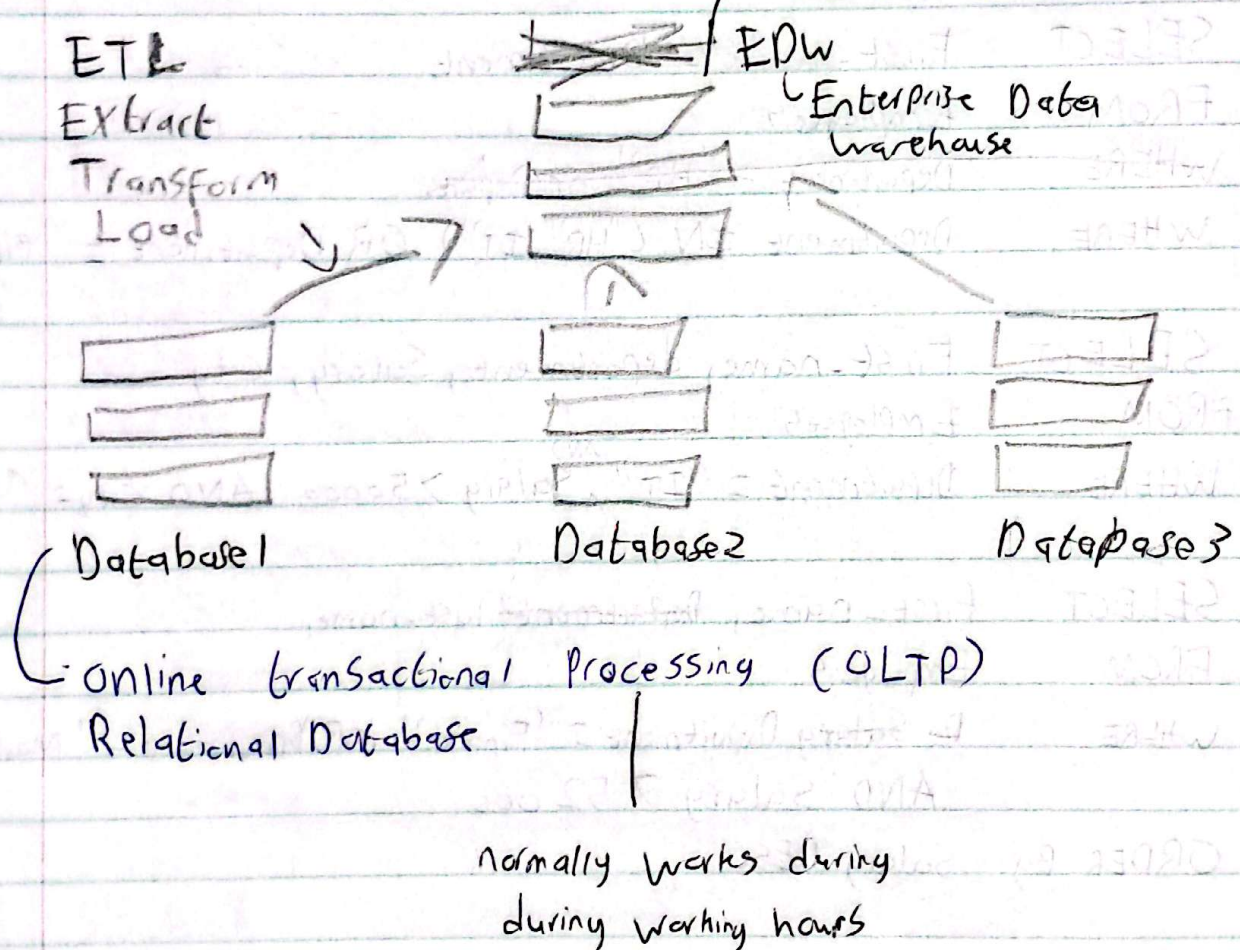 ETL
EDW
Extract
Enterprise Data
Warehouse
Transform
Load
Database1
Database2
Database3
online transactional Processing (OLTP)
Relational Database
normally works during
during working hours